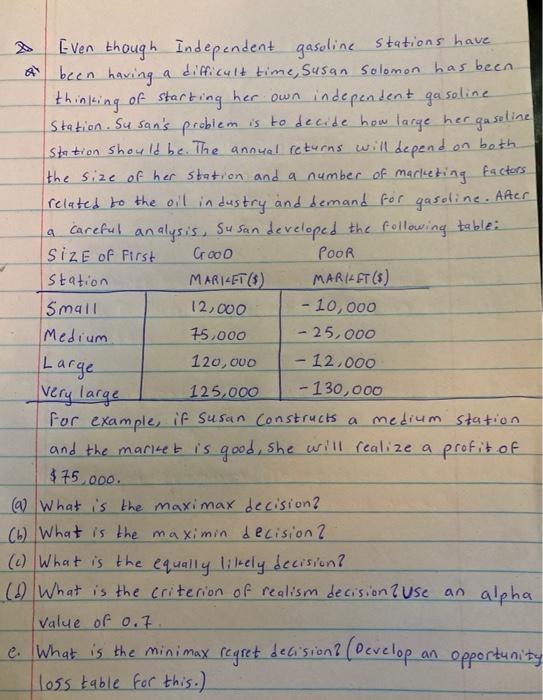 Even though Independent gasoline stations have
Q been having a difficult time, Susan Solomon has been
thinking of starting her own independent gasoline
Station. Susan's problem is to decide how large her gasoline
station should be. The annual returns will depend on both
the size of her station and a number of marketing factors
related to the oil industry and demand for gasoline. After
a careful analysis, Susan developed the following table:
SIZE OF First GOOD POOR
Station MARKET($) MARKET($)
Small 12,000 - 10,000
Medium 75,000 - 25,000
Large 120,000 - 12,000
Very large 125,000 - 130,000
For example, if Susan Constructs a medium station
and the market is good, she will realize a profit of
$75,000.
(a) What is the maximax decision?
(b) What is the maximin decision?
(c) What is the equally likely decision?
(d) What is the criterion of realism decision? Use an alpha
value of 0.7.
e. What is the minimax regret decision? (Develop an opportunity
loss table for this.)